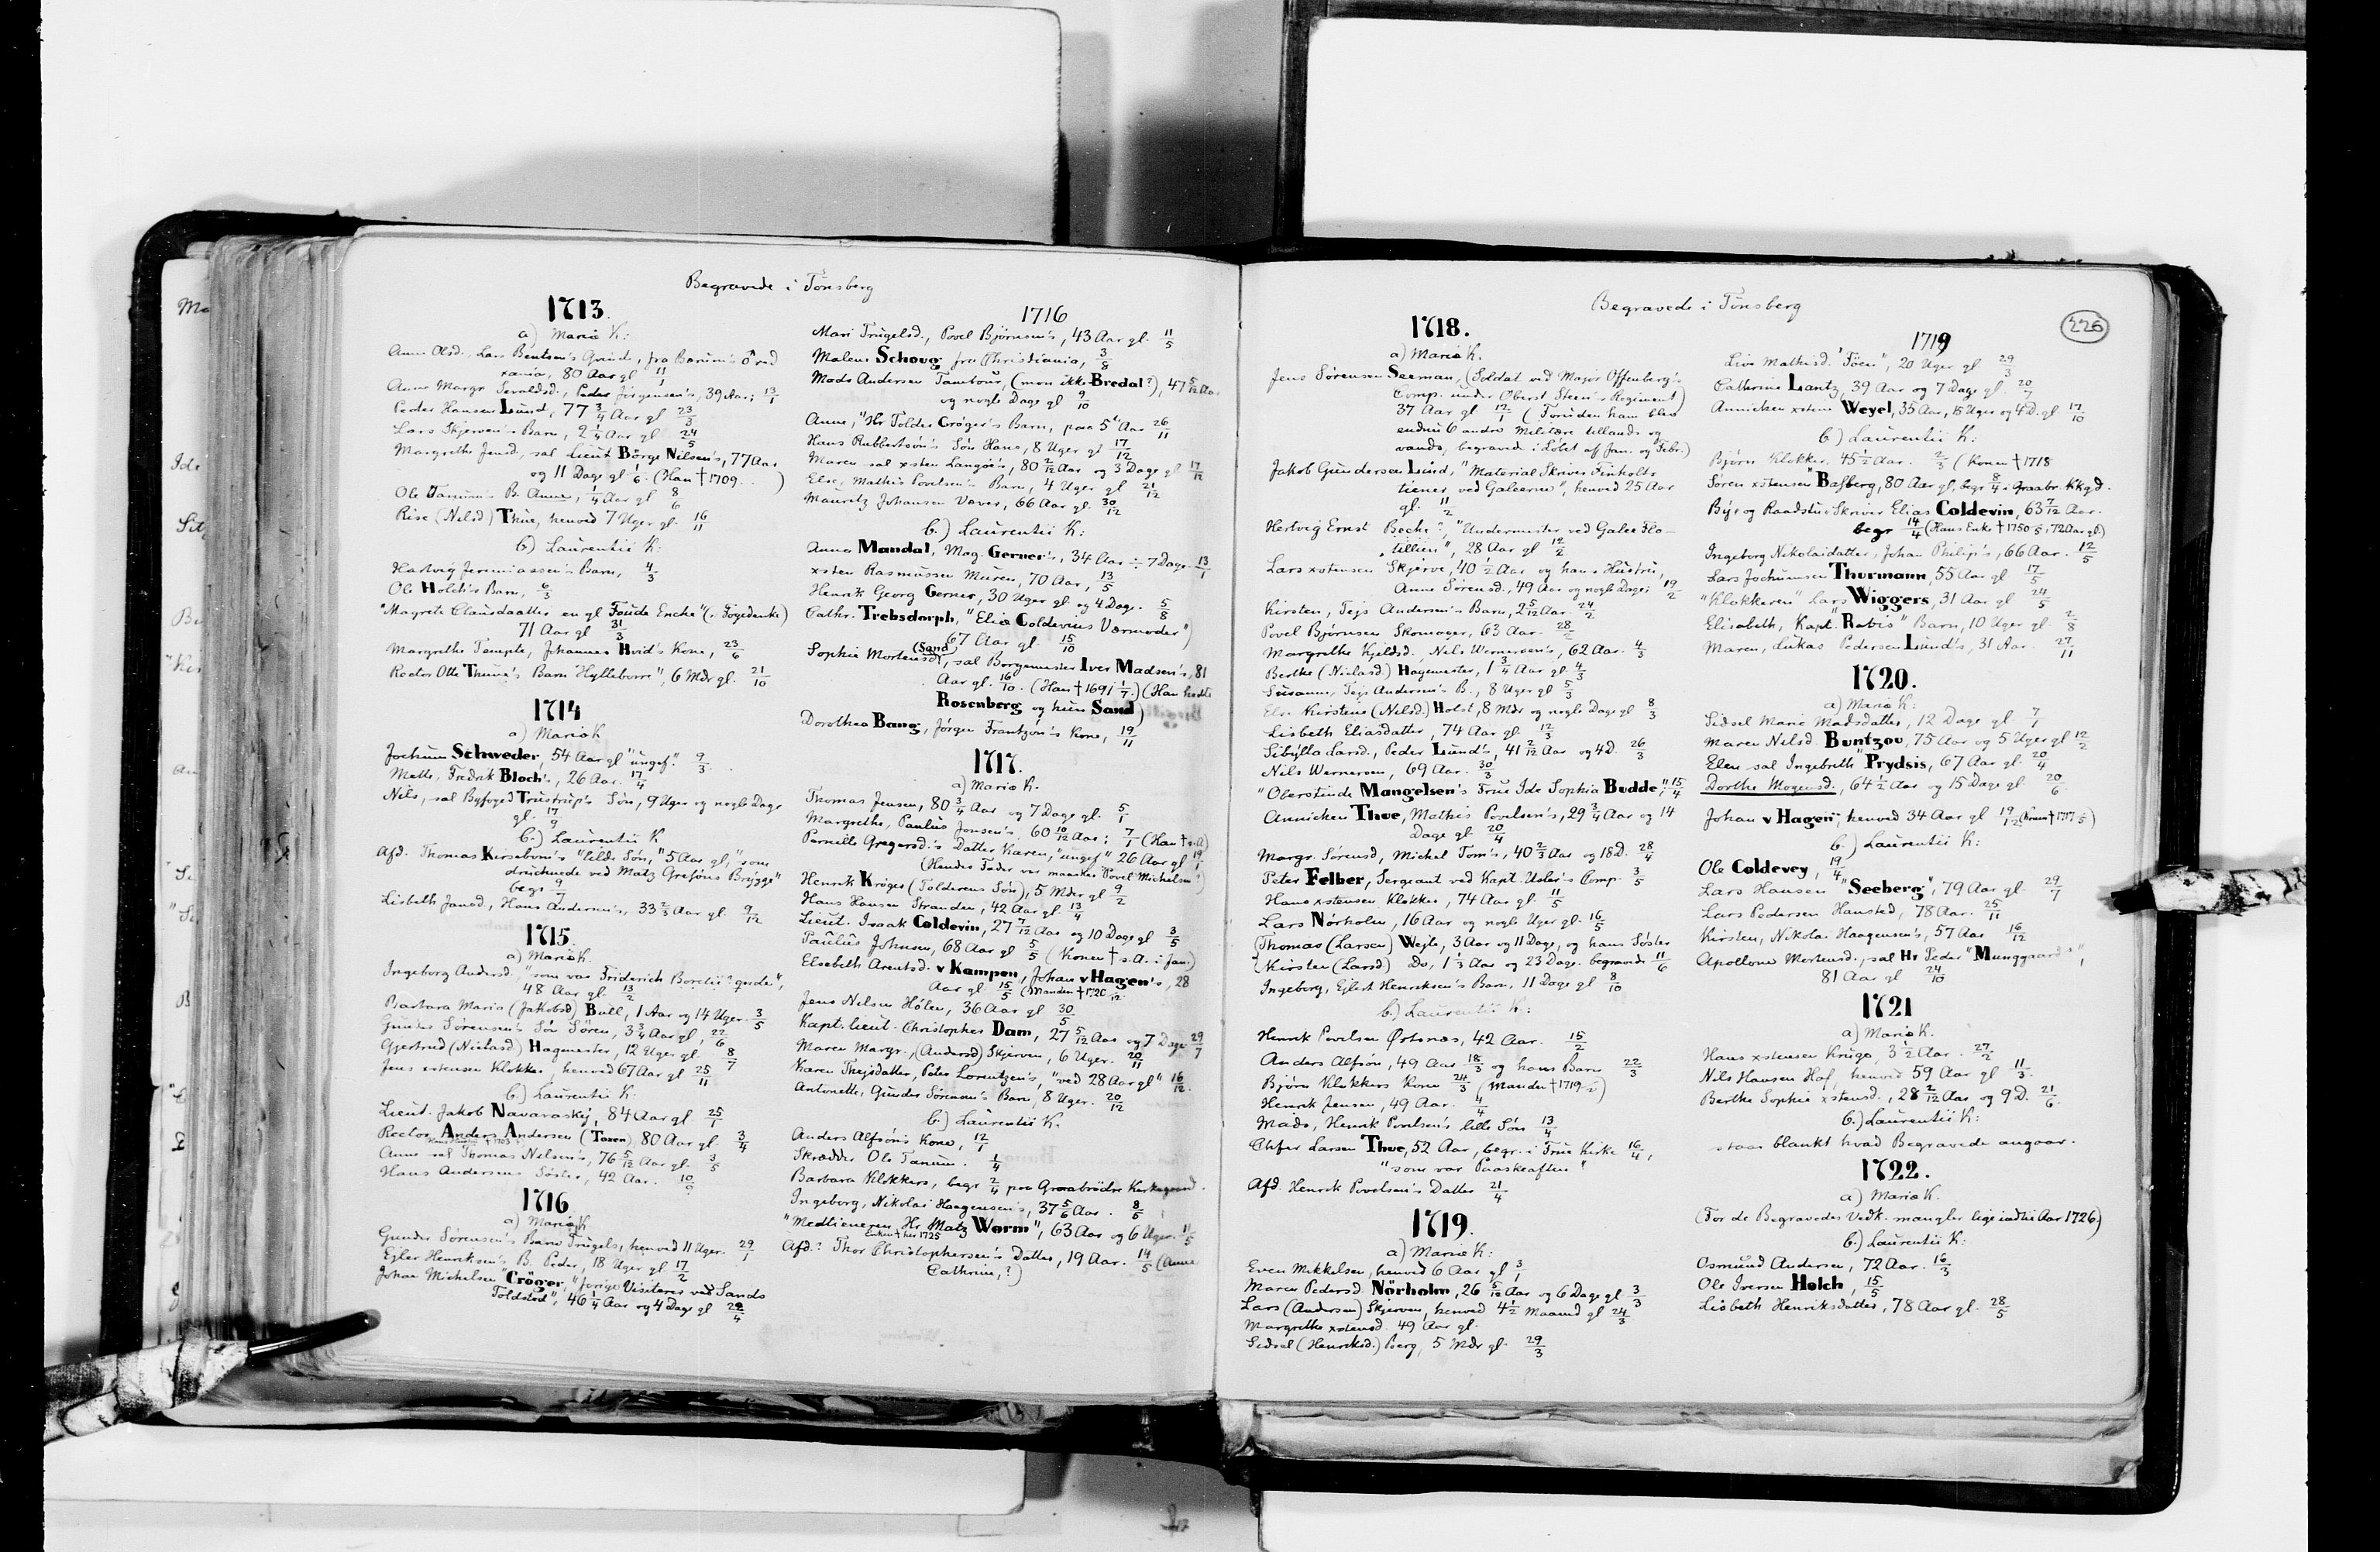 Begravede i Tönsberg
1713.
a) Mariæ K:
Anne Olsd., Lars Bentsen's Qvinde, fra Barum's ved
xania, 80 Aar gl 11/1
Anne Margr , Peder Jörgensen's, 39 Aar; 13/1
Peder Hansen Lund, 77 3/4 Aar gl 23/3
Lars Skjerven's Barn, 2 1/4 Aar gl 24/5
Margrethe Jensd., sal Lieut Börge Nilsen's, 77 Aar
og 11 Dage gl 1/6. (Han † 1709. )
Ole Tanum's B. Anne, 1/4 Aar gl 8/6
Rise (Nilsd) Thue, henved 7 Uger gl. 16/11
b) Laurentii K:
Hartvig Jeremiassen's Barn, 4/3
Ole Holch's Barn, 6/3
"Magrete Clausdaatter en gl Foude Encke" (: Fogedenke)
71 Aar gl 31/3
Margrethe Temple, Johannes Hvid's Kone, 23/6
Rector Otte Thune's Barn "Hylleborre", 6 Mdr gl. 21/10
1714
a) Mariæ K
Jochum Schweder, 54 Aar gl "ungef." 9/3.
Mette, Fredrik Bloch's, 26 Aar. 17/4
Nils, sal Byfoged Trustrup's Sön, 9 Uger og nogle Dage
gl. 17/9
b.) Laurentii K
Afd. Thomas Kirsebom's "lille Sön," 5 Aar gl, "som
druchnede ved Matz Grefsöns Brygge"
begr 9/7
Lisbeth Jansd, Hans Andersen's, 33 2/3 Aar gl. 9/12
1715.
a) Mariæ K.
Ingeborg Andersd., "som var Friderich Boretii? qvede",
48 Aar gl. 13/2
Barbara Maria (Jakobsd) Bull, 1 Aar og 14 Uger. 3/5
Gunder Sørensen's Sön Sören, 3 3/4 Aar gl, 22/6
Gjertrud (Nielasd) Hagemester, 12 Uger gl. 8/7
Jens xstensen Klokker, henved 67 Aar gl 25/11
b.) Laurentii K.
Lieut. Jakob Navaraskij, 84 Aar gl. 25/1
Rector Anders Andersen (Toxen), 80 Aar gl. 3/4
Anne sal Thomas Nilsen's, 76 5/12 Aar gl. 3/5
Hans Andersens Søster, 42 Aar. 10/9
1716
a) Mariæ K
Gunder Sørensen's Barn Trugels, henved 11 Uger. 29/1
Egler Henriksen's B. Peder, 18 Uger gl 17/2
Johan Michelsen "Cröger, "forige Visiterer ved Sands
Toldsted", 46 1/4 Aar og 4 Dage gl 29/4
1716
Mari Trugelsd., Povel Björnsen's, 43 Aar gl. 11/5
Malene Schoug fra Christiania, 3/8
Mads Andersen Tambour, (mon ikke Bredal?), 47 5/12 Aar
og nogle Dage gl 9/10
Anne, "Hr Tolder Cröger's Barn, paa 5te Aar 26/11
Hans Rubbertsøn's Søn Hans, 8 Uger gl 17/12
Maren sal xsten Langøe's, 80 2/12 Aar og 3 Dage gl 17/12
Else, Mathis Povelsen's Barn, 4 Uger gl 21/12
Mauritz Johansen Væver, 66 Aar gl. 30/12
b.) Laurentii K:
Anna Mandal, Mag. Gerner's, 34 Aar ÷ 7 Dage 13/1
xsten Rasmussen Muren, 70 Aar, 13/5
Henrik Georg Gerner, 30 Uger gl og 4 Dage. 5/8
Cathr. Trebsdorph, "Eliæ Coldevins Værmoder")
67 Aar gl. 15/10
(Sand)
Sophie Mortensd, sal Borgemester Iver Madsen's, 81
Aar gl. 16/10. (Han † 1691 1/7.) (Han hedte
Rosenberg og hun Sand)
Dorothea Bang, Jörgen Frantzøn's Kone, 19/11
1717.
a) Mariæ K.
Thomas Jensen, 80 3/4 Aar og 7 Dage gl. 5/1
Margrethe, Paulus Jonsen's, 60 10/12 Aar; 7/1 (Han † s.A)
Pernille Gregersd.'s Datter Karen, "ungef" 26 Aar gl 19/1
(Hendes Fader var maaske Povel Michelsen?)
Henrik Kröger (Tolderens Søn), 5 Mdr gl 9/2
Hans Hansen Stranden, 42 Aar gl. 13/4
Lieut. Isaak Coldevin, 27 7/12 Aar og 10 Dage gl 3/5
Paulus Johnsen, 68 Aar gl 5/5 (Konen † s.A. i Jan.)
Elsebeth Arentsd. v Kampen, Johan v Hagen's, 28
Aar gl. 15/5 (Manden † 1720 19/12
Jens Nilsen Hölen, 36 Aar gl 30/5
Kapt. lieut. Christopher Dam, 27 5/12 Aar og 7 Dage 29/7
Maren Margr., (Andersd) Skjerven, 6 Uger. 20/11
Karen Thejsdatter, Peter Lorentzen's, "ved 28 Aar gl" 16/12.
Antonette, Gunder Sörensen's Barn, 8 Uger. 20/12
b.) Laurentii K.
Anders Alfsön's Kone, 12/1
Skrædder Ole Tanum. 1/4
Barbara Klokkers, begr 2/4 paa Graabrödre Kirkegaard.
Ingeborg, Nikolai Haagensen's, 37 5/6 Aar. 8/5
"Medtieneren Hr. Matz Worm", 63 Aar og 6 Uger. 11/5
Enken † her 1725
Afd.? Thor Christophersen's Datter, 19 Aar. 14/5 (Anne
Cathrine,?)
Begravede i Tönsberg
226
1718.
a) Mariæ K.
Jens Sørensen Seeman, (Soldat ved Major Offenberg's
Comp. under Oberst Steen's Regiment)
37 Aar gl 12/1 (Foruden ham blev
endnu 6 andre Militære tillands og
vands, begravede i Löbet af Jan. og Febr.)
Jakob Gundersen Lund, "Material Skriver Finholts
tiener, ved Galeerne", henved 25 Aar
gl. 11/2
Hertvig Ernst Beche?, "Undermester ved Galee Flo-
tillien", 28 Aar gl 12/2
Lars xstensen Skjerve, 40 1/2 Aar og hans Hustru,
Anne Sørensd., 49 Aar og nogle Dage; 19/2
Kirsten, Tejs Andersen's Barn, 2 5/12 Aar. 24/2
Povel Bjørnsen Skomager, 63 Aar. 28/2
Margrethe Kjeldsd., Nils Wernersen's, 62 Aar. 4/3
Berthe (Nielasd.) Hagemester, 1 3/4 Aar gl 4/3
Susanne, Tejs Andersen's B., 8 Uger gl 5/3
Else Kirstine (Nilsd.) Holst, 8 Mdr og nogle Dage gl 8/3
Lisbeth Eliasdatter, 74 Aar gl. 12/3
Sibylla Larsd., Peder Lund's, 41 2/12 Aar og 4 D. 26/3
Nils Wernersen, 69 Aar. 30/3
"Oberstinde Mangelsen's Frue Ide Sophia Budde," 15/4
Annichen Thue, Mathis Povelsen's, 29 3/4 Aar og 14
Dage gl. 20/4
Margr. Sörensd, Michel Tom's, 40 2/3 Aar og 18 D. 28/4
Peter Felber, Sergeant ved Kapt. Usler's Comp. 3/5
Hans xstensen Klokker, 74 Aar gl. 11/5
Lars Nørholm, 16 Aar og nogle Uger gl. 16/5
Thomas (Larsen) Wejle, 3 Aar og 11 Dage, og hans Søster
Kirsten (Larsd) Do, 1 1/3 Aar og 23 Dage. begravede 11/6
Ingeborg, Eglert Henriksen's Barn, 11 Dage gl 8/10
b.) Laurentii K:
Henrik Povelsen Ørsnæs, 42 Aar. 15/2
Anders Alfsön, 49 Aar 18/3 og hans Barn 22/3
Bjørn Klokkers Kone 24/3 (Manden † 1719 )
Henrik Jensen, 49 Aar. 4/4
Mads, Henrik Povelsen's lille Søn 13/4
Chfer Larsen Thue, 52 Aar, begr. i Frue Kirke 16/4,
"som var Paaskeaften"
Afd. Henrik Povelsen's Datter 21/4
1719.
a) Mariæ K:
Even Mikkelsen, henved 6 Aar gl 3/1
Maren Pedersd. Nörholm, 26 5/12 Aar og 6 Dage gl 3/3
Lars (Andersen) Skjerven, henved 4 1/2 Maaned gl 24/3
Margrethe xstensd. 49 Aar gl.
Sidsel (Henriksd.) Berg, 5 Mdr gl. 29/3
1719
Live Mathisd. "Föen", 20 Uger gl 29/3
Cathrine Lantz, 39 Aar og 7 Dage gl. 20/7
Annichen xstine Weyel, 35 Aar, 15 Uger og 4 D. gl. 17/10
b.) Laurentii K:
Bjørn Klokker, 45 1/2 Aar. 2/3 (Konen † 1718
Søren xstensen "Basberg, 80 Aar gl. begr 8/4 i Graabr. Kkgd.
By- og Raadstue Skriver Elias Coldevin, 63 7/12 Aar.
begr 14/4 (Hans Enke † 1750 , 72 Aar gl.)
Ingeborg Nikolaidatter, Johan Philip's, 66 Aar. 12/5
Lars Jochumsen Thurmann, 55 Aar gl 17/5
"Klokkeren" Lars Wiggers, 31 Aar gl 24/5
Elisabeth, Kapt. "Rabis" Barn, 10 Uger gl. 2/8
Maren, Lukas Pedersen Lund's, 31 Aar. 27/11
1720.
a) Mariæ K:
Sidsel Marie Madsdatter, 12 Dage gl 7/1
Maren Nilsd. Buntzou, 75 Aar og 5 Uger gl 12/2
Elen sal Ingebreth "Prydsis, 67 Aar gl. 20/4
Dorthe Mogensd., 64 1/2 Aar og 15 Dage gl. 20/6.
Johan v Hagen, henved 34 Aar gl 19/12 (Konen † 1717 )
b.) Laurentii K:
Ole Coldevey, 19/4
Lars Hansen "Seeberg", 79 Aar gl. 29/7
Lars Pedersen Hansted, 78 Aar. 25/11
Kirsten, Nikolai Haagensen's, 57 Aar 16/12
Apollone Mortensd., sal Hr Peder "Munggaard's",
81 Aar gl 24/10
1721
a) Mariæ K.
Hans xstensen Kruge, 3 1/2 Aar. 27/2
Nils Hansen Hof, henved 59 Aar gl 11/3.
Berthe Sophie xstensd., 28 2/12 Aar og 9 D. 21/6.
b.) Laurentii K:
staar blankt hvad Begravede angaar.
1722.
a) Mariæ K.
(For de Begravedes Vedk. mangler lige indtil Aar 1726)
b.) Laurentii K:
Osmund Andersen, 72 Aar. 16/3
Ole Iversen Holch, 15/5
Lisbeth Henriksdatter, 78 Aar gl. 28/5